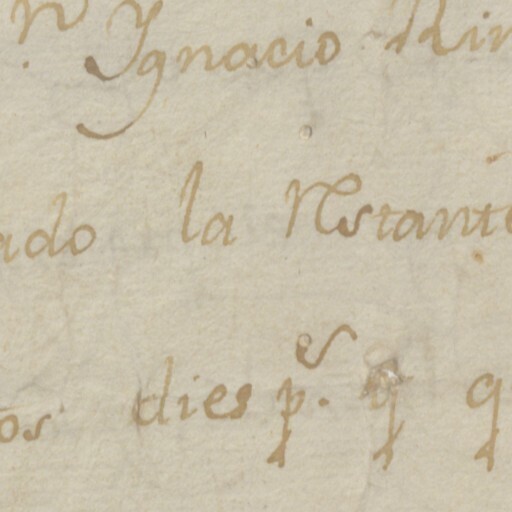 Ygnacio
ado la Restante
os dies p.s q q